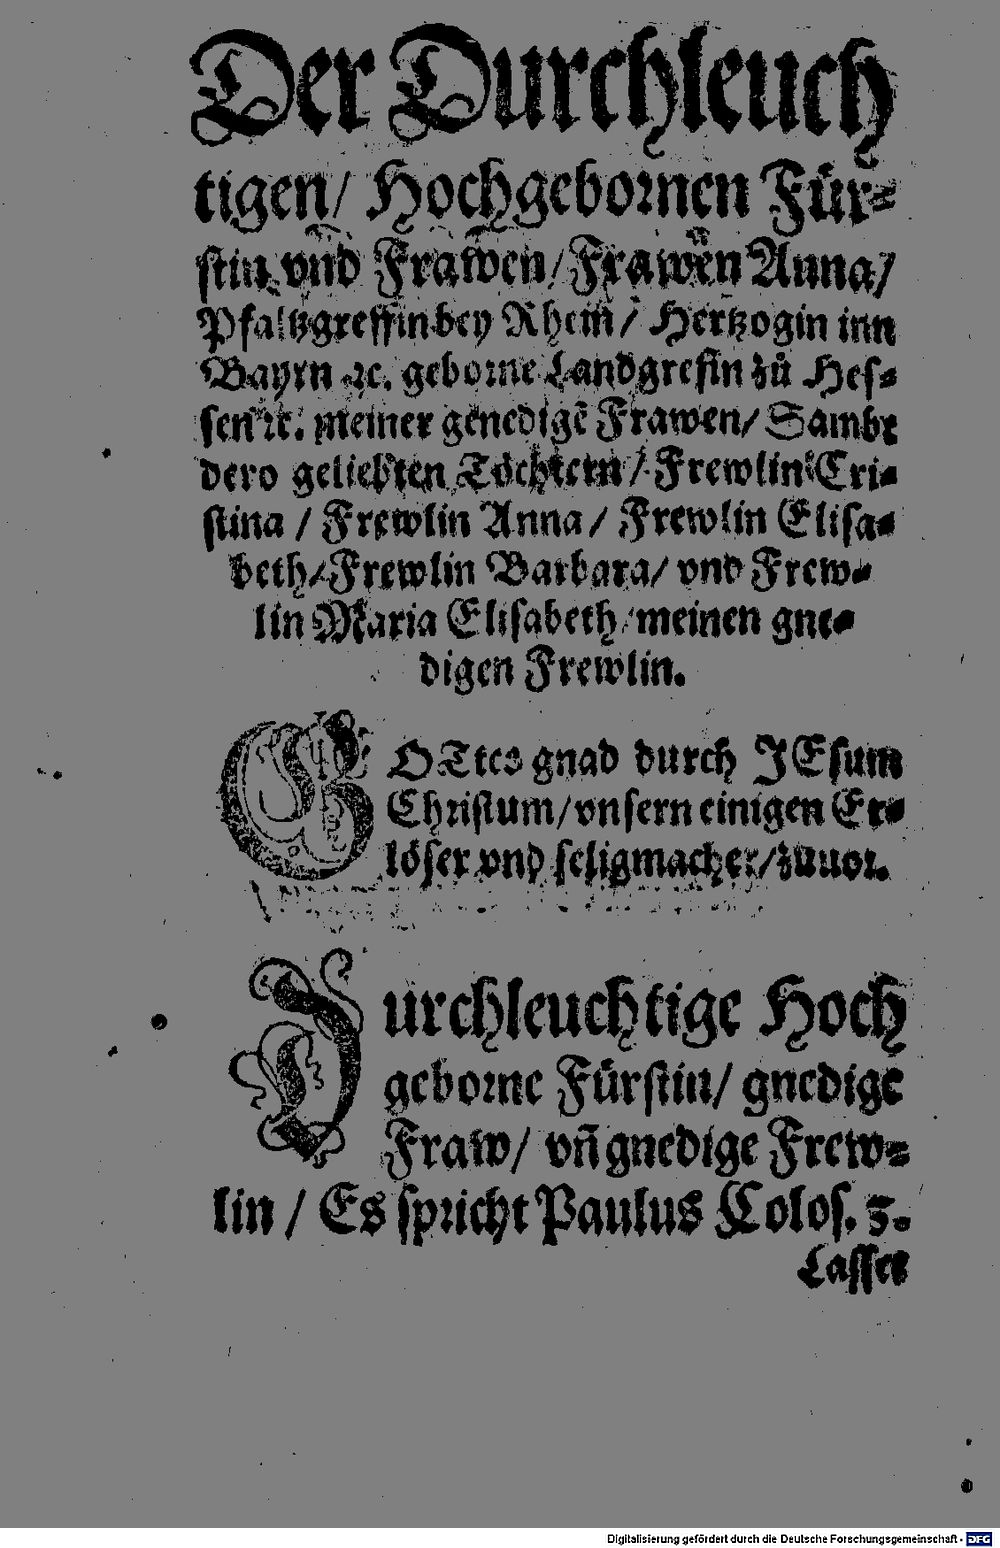 Der Durchleuch
tigen/ Hochgebornen Für⸗
stin vnd Frawen/ Frawen Anna/
Pfaltzgreffin bey Rhein/ Hertzogin inn
Bayrn ꝛc. geborne Landgrefin zů Hes⸗
sen ꝛc. meiner genedigē Frawen/ Sambt
dero geliebten Töchtern/ Frewlin Cri⸗
stina / Frewlin Anna / Frewlin Elisa⸗
beth/ Frewlin Barbara/ vnd Frew⸗
lin Maria Elisabeth/ meinen gne⸗
digen Frewlin.
GOTtes gnad durch JEsum
Christum/ vnsern einigen Er⸗
löser vnd seligmacher/ zuuor.
Durchleuchtige Hoch
geborne Fürstin/ gnedige
Fraw/ vñ gnedige Frew⸗
lin / Es spricht Paulus Colos. 3.
Lasset
Digitalisierung gefördert durch die Deutsche Forschungsgemeinschaft - DFG